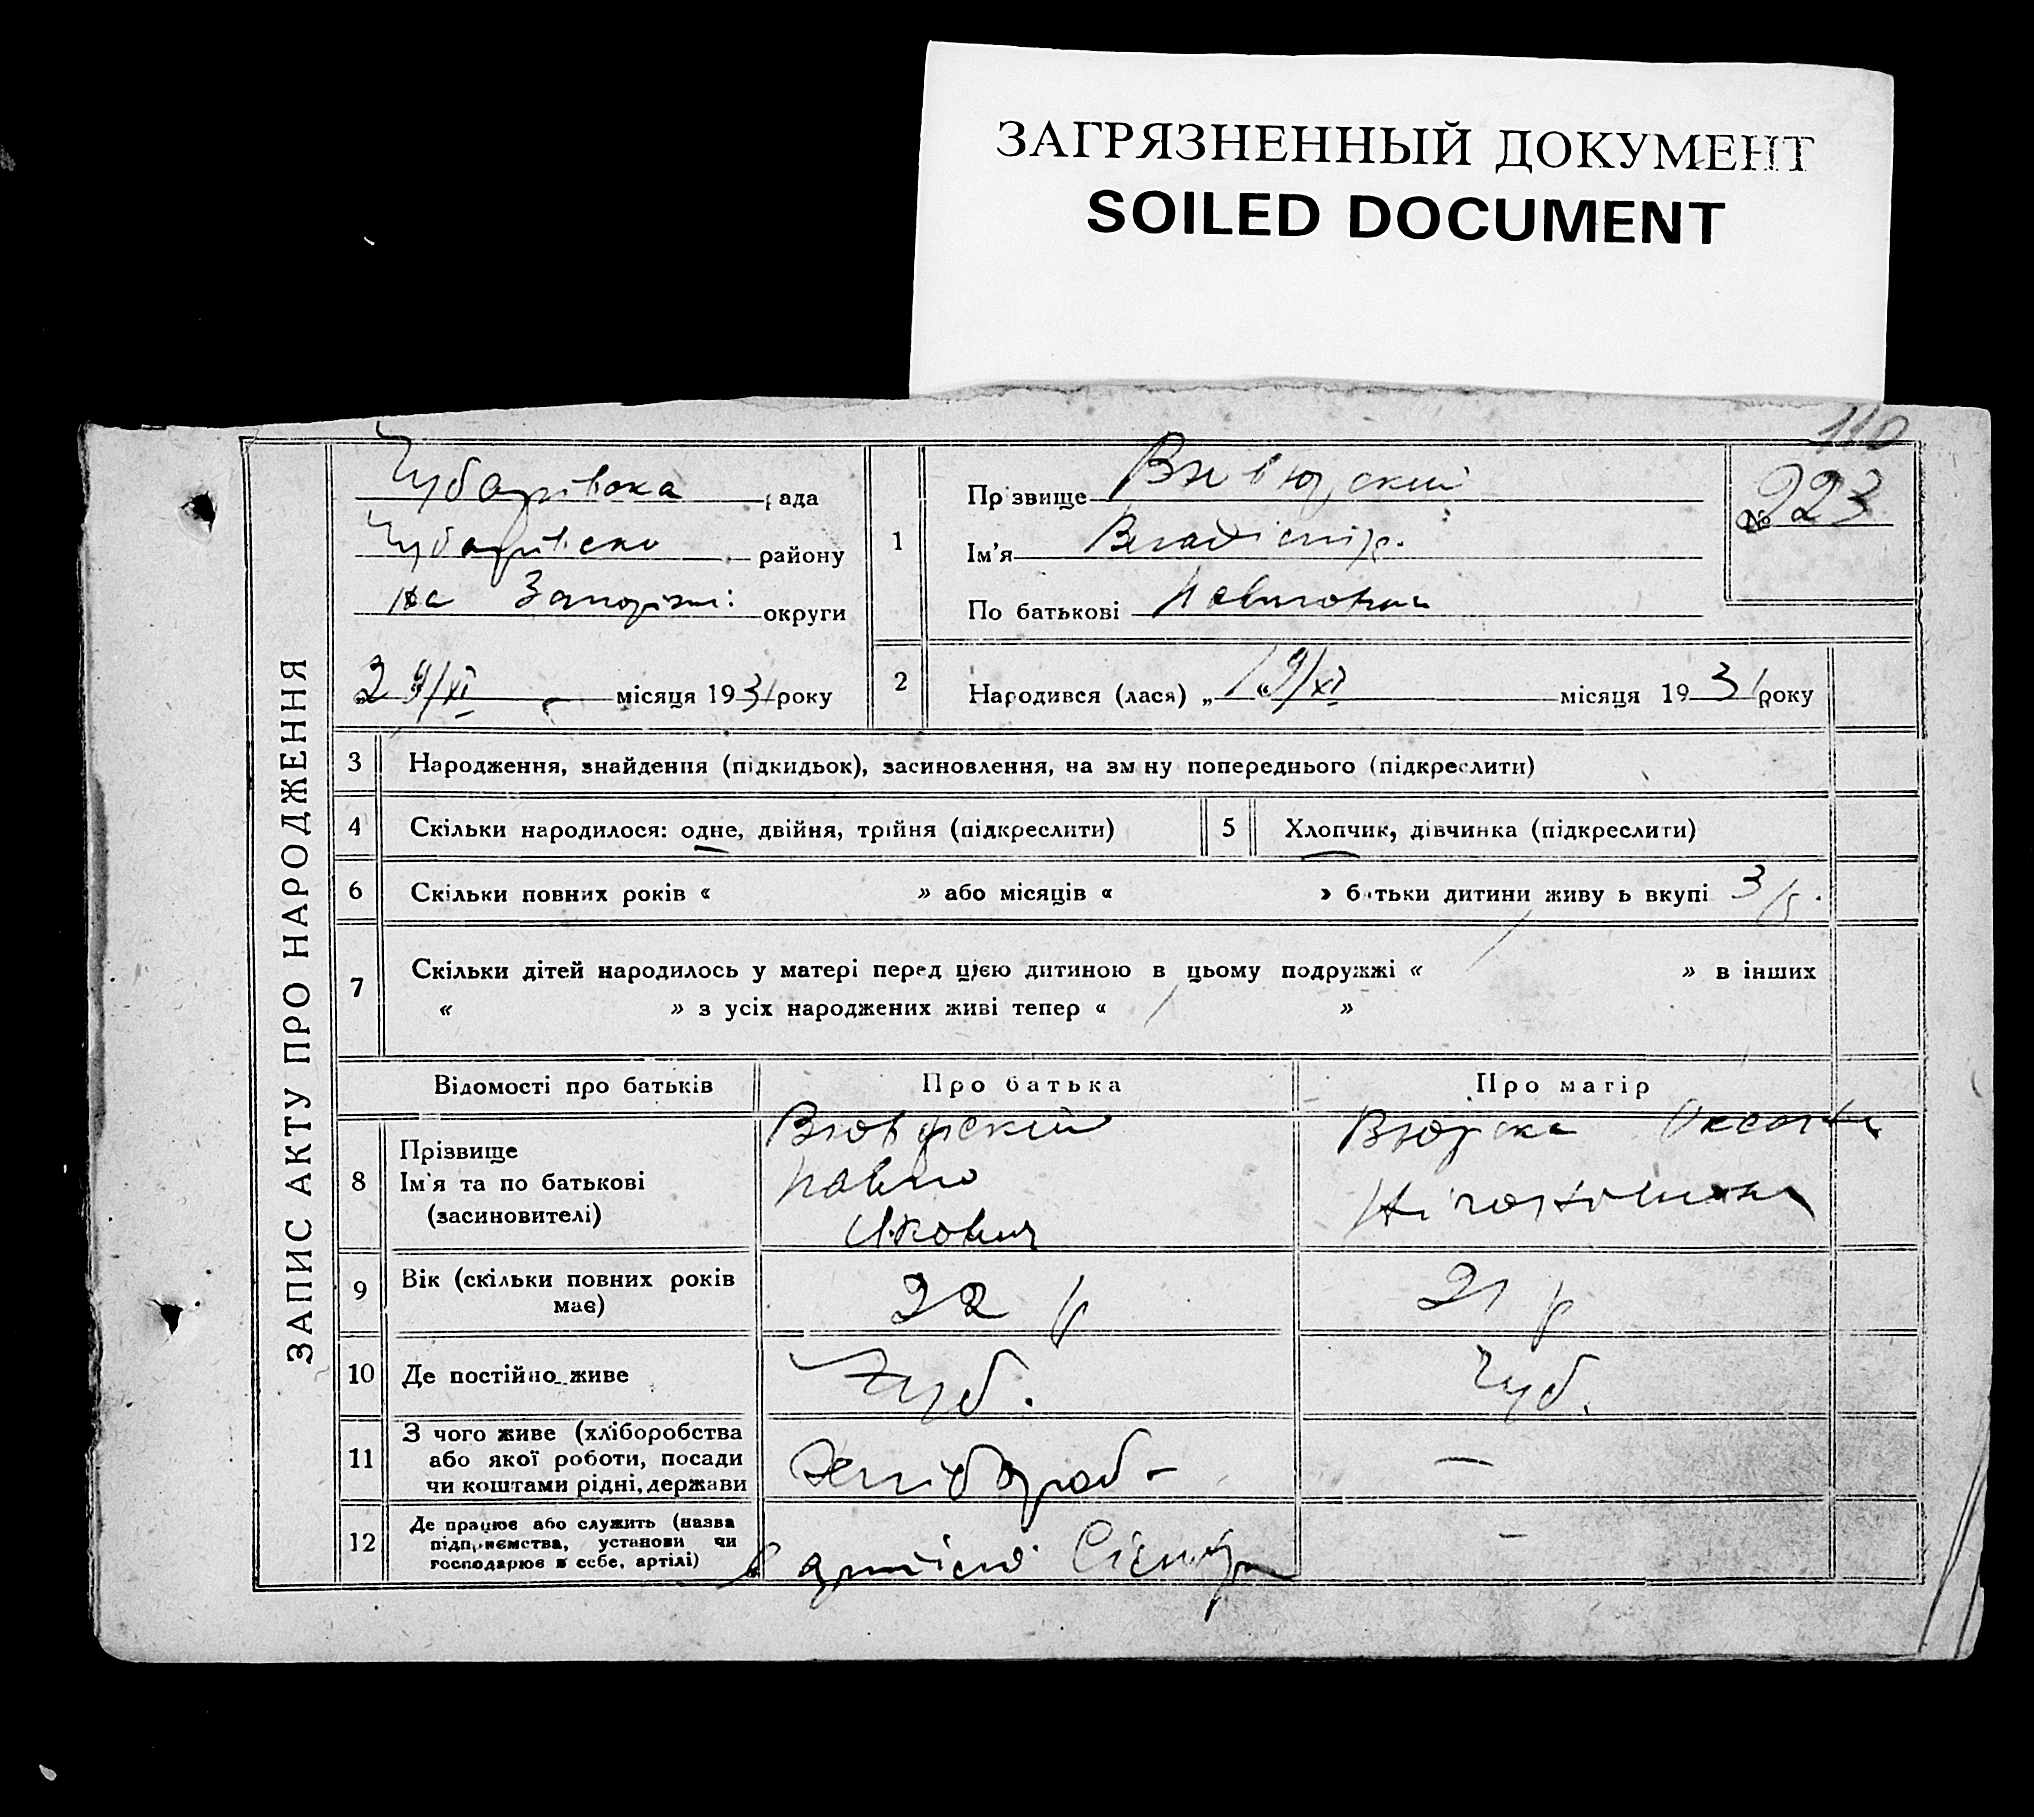 ЗАГРЯЗНЕННЫЙ ДОКУМЕНТ
SOILED DOCUMENT
110
ЗАПИС АКТУ ПРО НАРОДЖЕННЯ
Чубарівска рада
району
округи
29/XI місяця 1931 року
1
Прізвище
Ім'я Владімір.
По батькові Павлович
№ 223
2
Народився (лася) „ 19/XI місяця 1931 року
3 Народження, знайдення (підкидьок), засиновлення, на зміну попереднього (підкреслити)
4 Скільки народилося: одне, двійня, трійня (підкреслити)
5 Хлопчик, дівчинка (підкреслити)
6 Скільки повних років « » або місяців « » батьки дитини живуть вкупі 3
7 Скільки дітей народилось у матері перед цією дитиною в цьому подружжі « » в інших
« » з усіх народжених живі тепер « »
Відомості про батьків Про батька Про матір
8
Прізвище
Ім'я та по батькові
(засиновителі)
Павло
Якович
9 Вік (скільки повних років
має)
22 р
21 р
10 Де постійно живе Чуб. Чуб.
11 З чого живе (хліборобства
або якої роботи, посади
чи коштами рідні, держави
Хлібороб –
—
12 Де працює або служить (назва
підприємства, установи чи
господарює в себе, артілі)
–